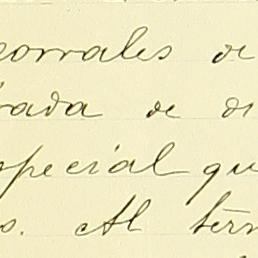 corrales de
rada de di
special qu
s. Al térm